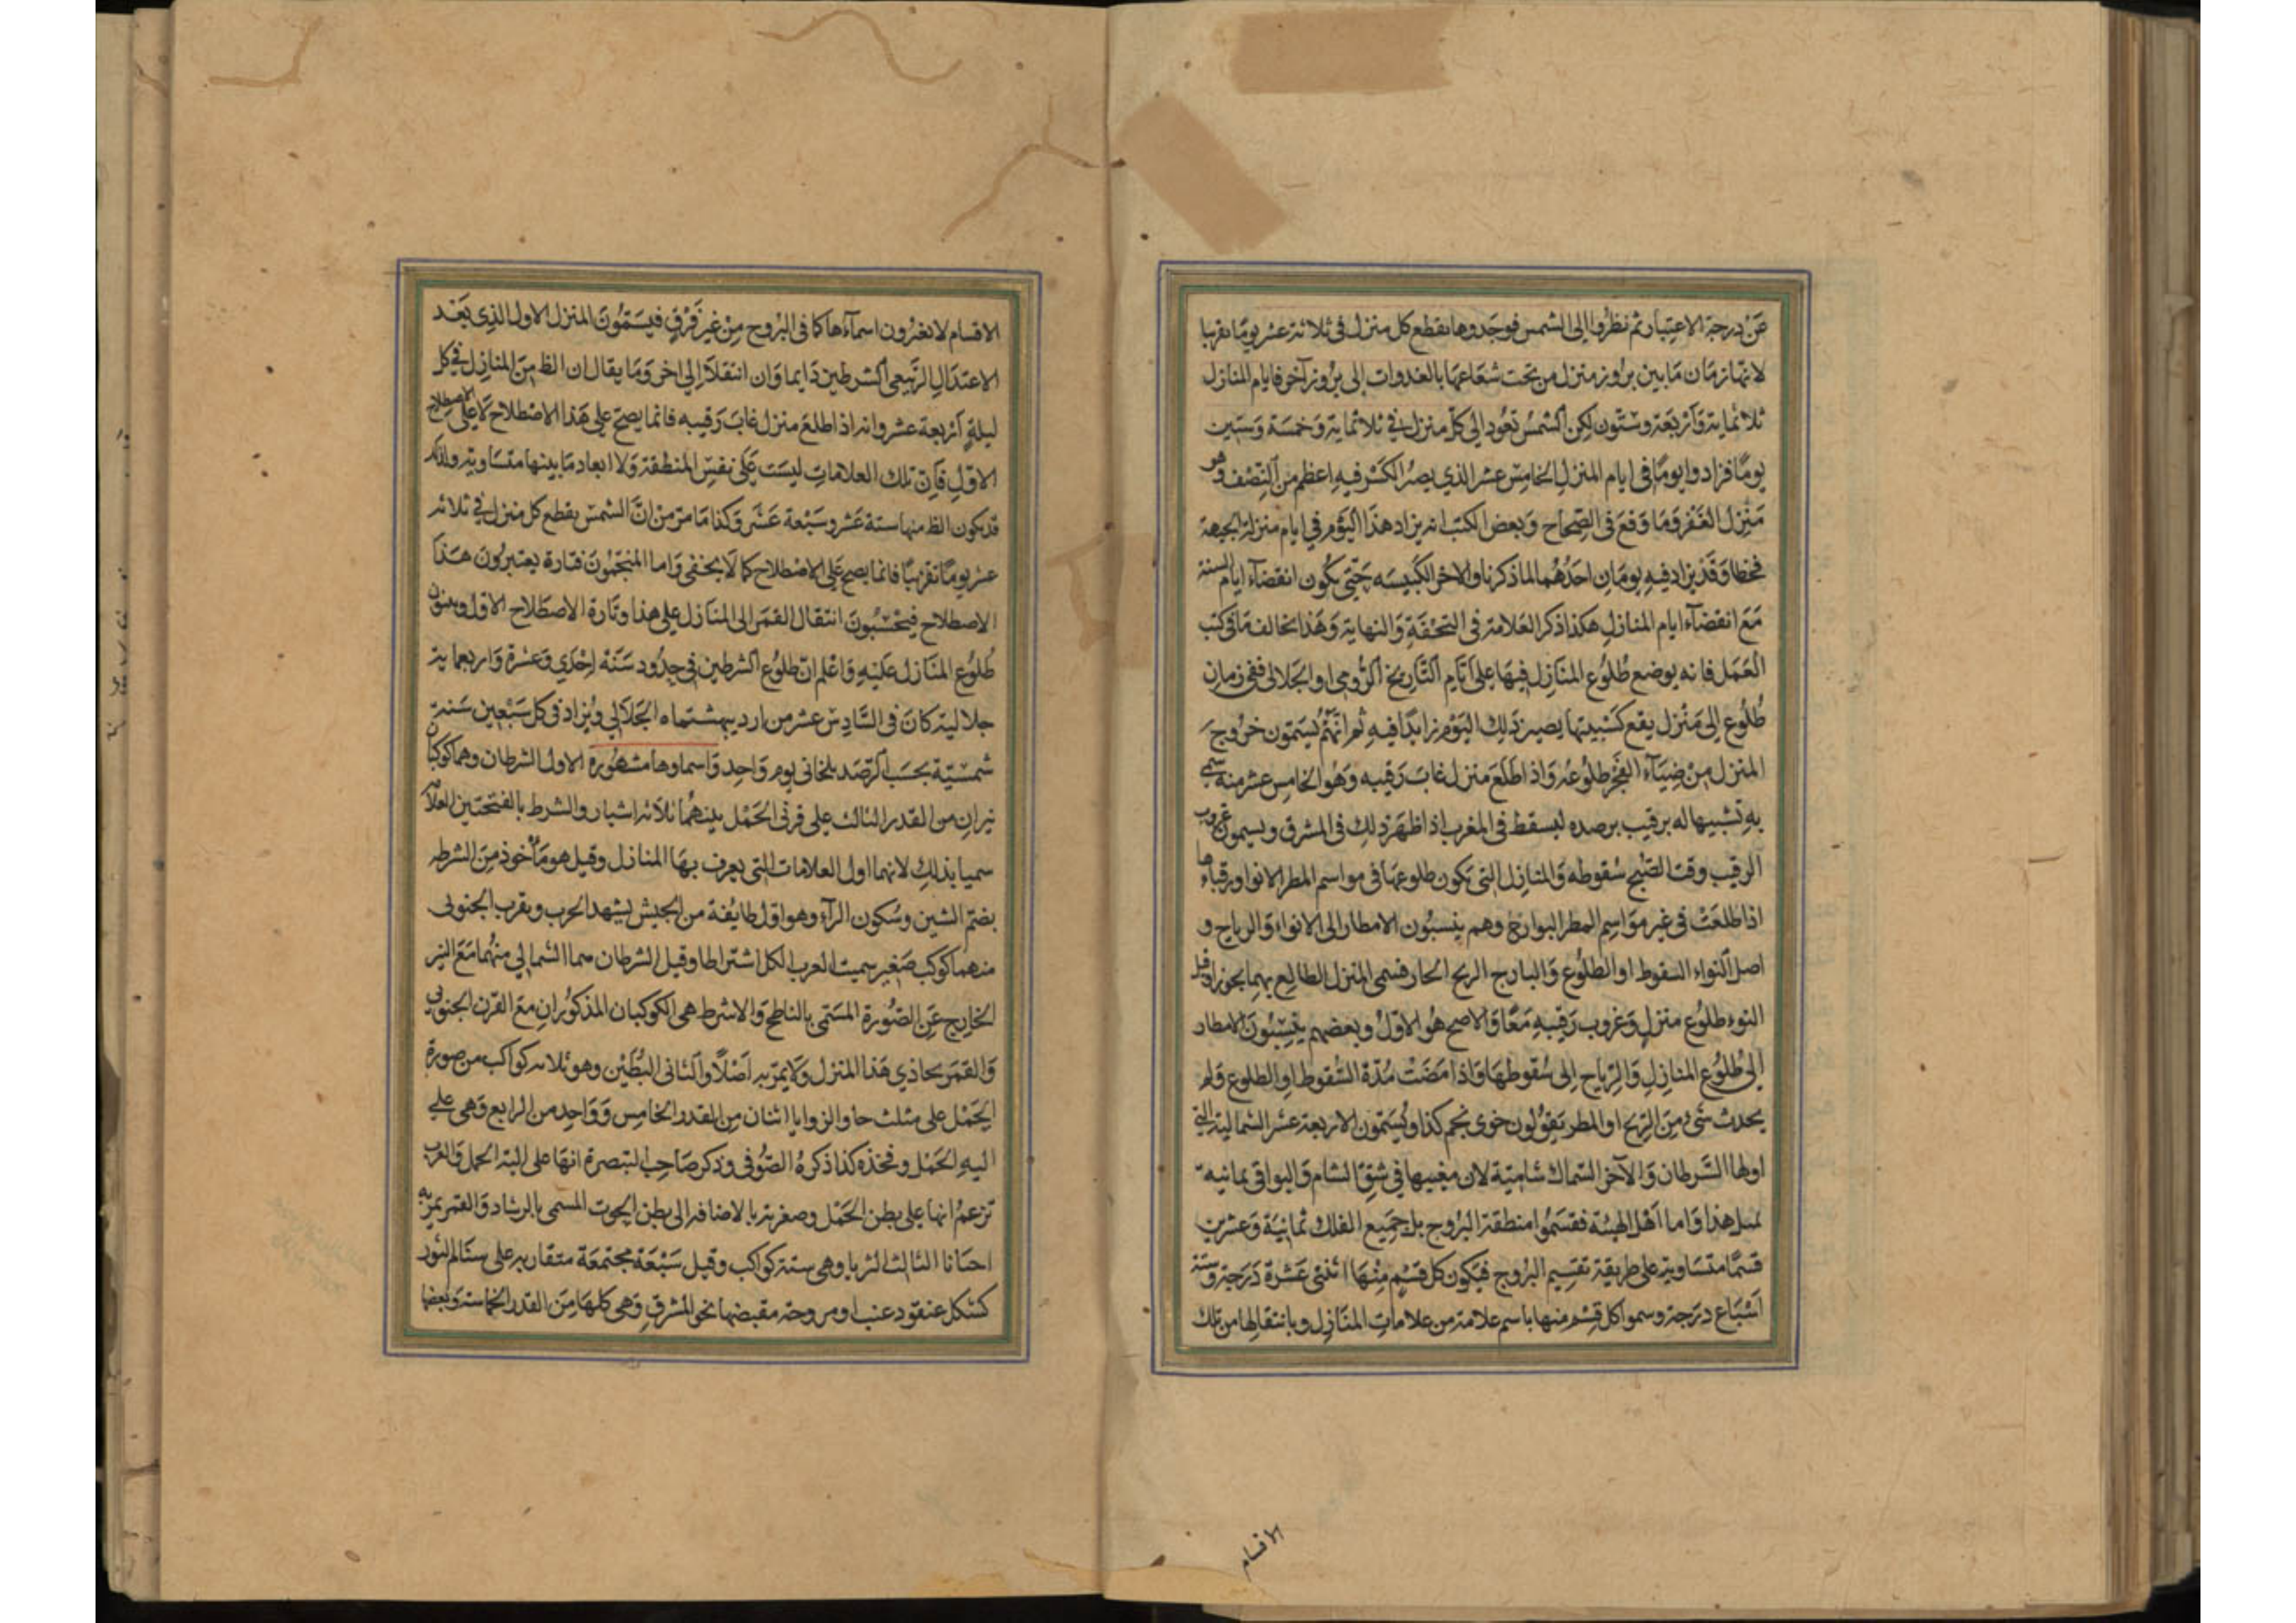 عن درجة الاعتبار ثم نظروا الى الشمس فوجدوها تقطع كل منزل في ثلاثة عشر يوما تقريبا
لانها زمان ما بين بروز منزل من تحت شعاعها بالغدوات الى بروز آخر فايام المنازل
ثلاثماية وأربعة وستون لكن الشمس تعود الى كل منزل في ثلاثماية وخمسة وستين
يوما فزادوا يوما في ايام المنزل الخامس عشر الذي يصير الكسر فيه اعظم من النصف وهو
منزل الغفر وما وقع في الصحاح وبعض الكتب انه يزاد هذا اليوم في ايام منزلة الجبهة
فخطا وقد يزاد فيه يومان احدهما لما ذكرنا والاخر للكبيسه حتى يكون انقضآء ايام السنة
مع انقضآء ايام المنازل هكذا ذكر العلامة في التحفة والنهاية وهذا يخالف ما في كتب
العمل فانه يوضع طلوع المنازل فيها على ايام التاريخ الرومي او الجلالي ففي زمان
طلوع اي منزل يقع كبيستها يصير ذلك اليوم زايدا فيه ثم انهم يسمون خروج
المنزل من ضيآء الفجر طلوعه واذا طلع منزل غاب رقيبه وهو الخامس عشر منه سمي
به تشبيها له برقيب يرصده ليسقط في المغرب اذا ظهر ذلك في المشرق ويسمون غروب
الرقيب وقت الصبح سقوطه والمنازل التي يكون طلوعها في مواسم المطر الانوا ورقباءها
اذا طلعت في غير مواسم المطر البوارح وهم ينسبون الامطار الى الانواء والرياح و
اصل النواء السقوط او الطلوع والبارح الريح الحار فسمى المنزل الطالع بهما تجوزا وقيل
النوء طلوع منزل وغروب رقيبه معا والاصح هو الاول وبعضهم ينسبون الامطار
الى طلوع المنازل والرياح الى سقوطها واذا مضت مدة السقوط او الطلوع ولم
يحدث شيء من الريح او المطر يقولون خوى نجم كذا ويسمون الاربعة عشر الشمالية التي
اولها الشرطان والآخر السماك شامية لان مغيبها في شق الشام والبواقي يمانيه
لمثل هذا واما اهل الهيئة فقسموا منطقة البروج بل جميع الفلك ثمانية وعشرين
قسما متساوية على طريقة تقسيم البروج فيكون كل قسم منها اثنتي عشرة درجة وستة
اسباع درجة وسموا كل قسم منها باسم علامة من علامات المنازل وبانتقالها من تلك
الاقسام
الاقسام لا يغيرون اسمآءها كما في البروج من غير فرق فيسمون المنزل الاول الذي بعد
الاعتدال الربيعي الشرطين دايما وان انتقلا الى اخر وما يقال ان الظ من المنازل في كل
ليلة أربعة عشر وانه اذا طلع منزل غاب رقيبه فانما يصح على هذا الاصطلاح لا على الاصطلاح
الاول فان تلك العلامات ليست على نفس المنطقة ولا ابعاد ما بينها متساوية ولذلك
قد يكون الظ منها ستة عشر وسبعة عشر وكذا ما مر من ان الشمس يقطع كل منزل في ثلاثه
عشر يوما تقريبا فانما يصح على الاصطلاح كما لا يخفى واما المنجمون فتارة يعتبرون هذا
الاصطلاح فيحسبون انتقال القمر الى المنازل على هذا وتارة الاصطلاح الاول ويبنون
طلوع المنازل عليه واعلم ان طلوع الشرطين في حدود سنة احدي وعشرة واربعماية
جلالية كان في السادس عشر من ارديبهشتماه الجلالي ويزاد في كل سبعين سنة
شمسية بحسب الرصد يلخاني يوم واحد واسماوها مشهورة الاول الشرطان وهما كوكبان
نيران من القدر الثالث على قرني الحمل بينهما ثلاثة اشبار والشرط بالفتحتين العلامة
سميا بذلك لانهما اول العلامات التي يعرف بها المنازل وقيل هو مأخوذ من الشرطه
بضم الشين وسكون الرآء وهو اول طايفة من الجيش يشهد الحرب وبقرب الجنوبي
منهما كوكب صغير سميت العرب الكل اشراطا وقيل الشرطان هما الشمالي منهما مع النير
الخارج عن الصورة المسمى بالناطح والاشرط هي الكوكبان المذكوران مع القرن الجنوبي
والقمر يحاذي هذا المنزل ولا يمر به اصلا والثاني البطين وهو ثلاثه كواكب من صورة
الحمل على مثلث حاد الزوايا اثنان من القدر الخامس وواحد من الرابع وهي على
الية الحمل وفخذه كذا ذكره الصوفي وذكر صاحب التبصرة انها على الية الحمل والعرب
تزعم انها على بطن الحمل وصغر به بالاضافه الى بطن الحوت المسمى بالرشاد والقمر يمر به
احيانا الثالث الثريا وهي ستة كواكب وقيل سبعة مجتمعة متقاربه على سنام الثور
كشكل عنقود عنب او مروحة مقبضها نحو المشرق وهي كلها من القدر الخامسة وبعضها